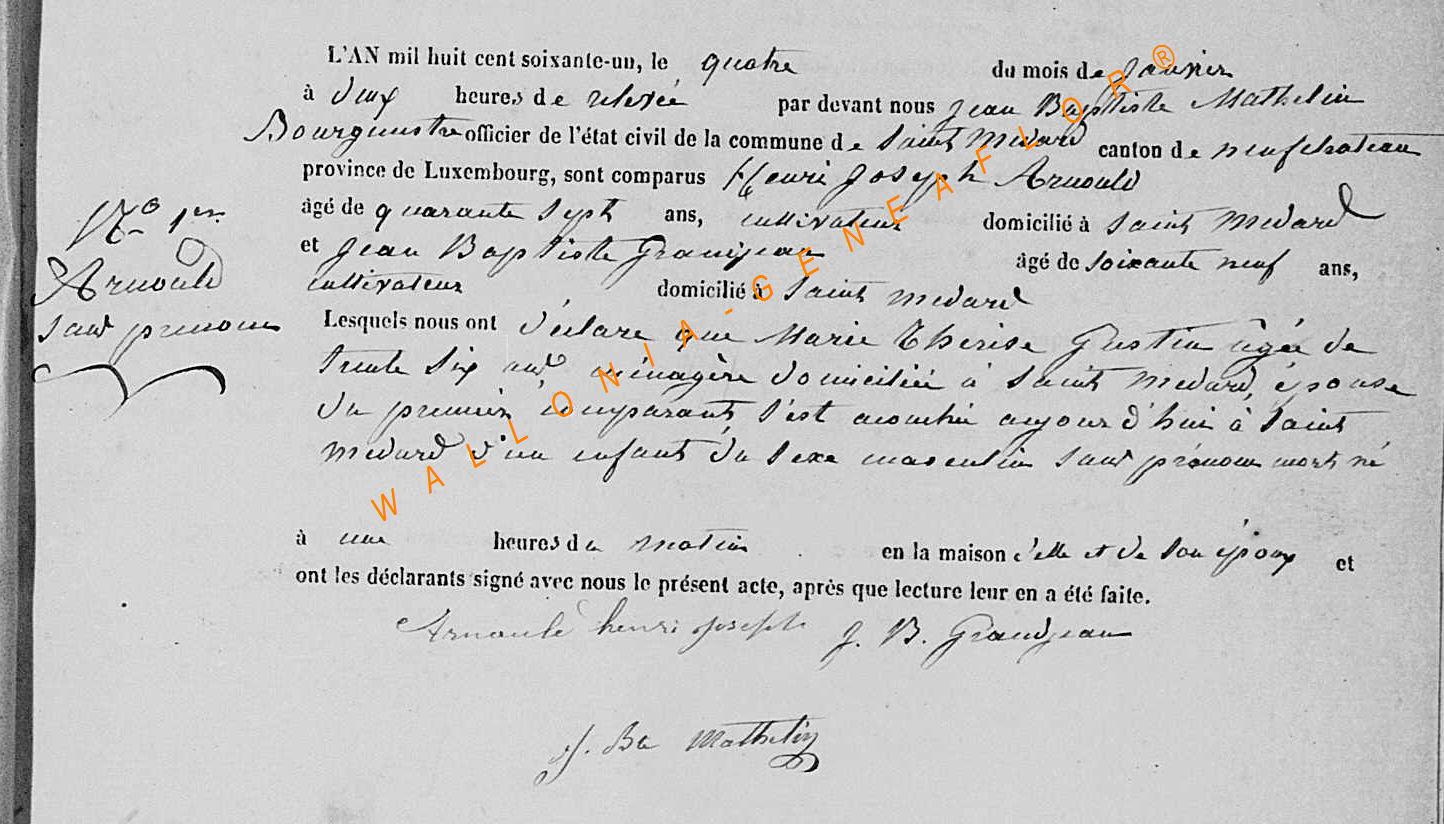 L'AN mil huit cent soixante-un, le quatre du mois de Janvier
à deux heures de relevée par devant nous Jean Baptiste Mathelin
Bourgmestre officier de l'état civil de la commune de Saint Médard canton de neufchateau
province de Luxembourg, sont comparus Henri Joseph Arnould
âgé de quarante sept ans, cultivateur domicilié à Saint Médard
et Jean Baptiste Grandjean âgé de soixante neuf ans,
cultivateur domicilié à Saint Médard
Lesquels nous ont déclaré que Marie Thérèse Gustin âgée de
trente six ans ménagère domiciliée à Saint Médard, épouse
du premier comparant s'est accouchée aujourd'hui à Saint
Médard d'un enfant du sexe masculin sans prénom mort né
à une heures du matin en la maison d'elle et de son époux et
ont les déclarants signé avec nous le présent acte, après que lecture leur en a été faite.
Arnould henri joseph J. B. Grandjean
J. Bte Mathelin
No 1er
Arnould
sans prénom
WALLONIA-GENEAFLOR®